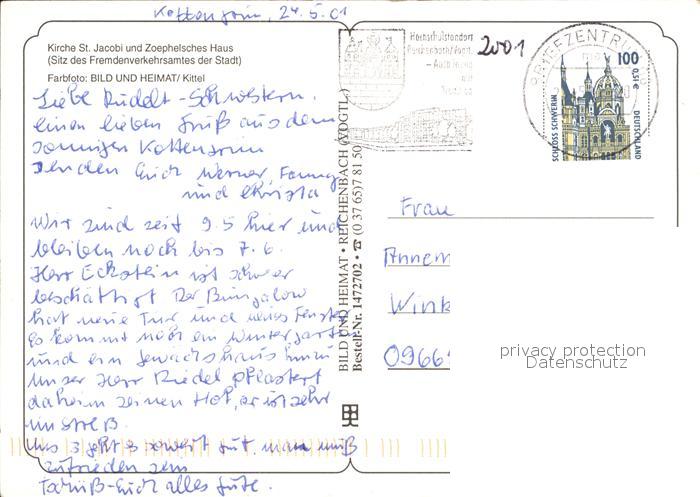 Kottengrün, 24.5.01
Kirche St. Jacobi und Zoephelsches Haus
(Sitz des Fremdenverkehrsamtes der Stadt)
Farbfoto: BILD UND HEIMAT/ Kittel
Liebe Rudelt-Schwestern.
einen lieben Gruß aus dem
sonnigen Kottengrün
senden Euch Werner, Fanny
und Christa
Wir sind seit 9.5 hier und
bleiben noch bis 7.6.
Herr Eckstein ist schwer
beschäftigt Der Bungalow
hat neue Tür und neues Fenster
Es kommt noch ein Wintergarten
und ein Gewächshaus hinzu
Unser Herr Riedel pflastert
daheim seinen Hof, er ist sehr
im Streß.
Uns 3 geht es soweit gut. man muß
zufrieden sein
Tschüß-Euch alles Gute.
BILD UND HEIMAT • REICHENBACH (VOGTL.)
Bestell-Nr. 1472702 • ☎ (0 37 65) 7 81 50
Hochschulstandort
Reichenbach/Vogtl.
2001
BRIEFZENTRUM
100
0,51 €
SCHLOSS SCHWERIN
DEUTSCHLAND
Frau
Annem
Wink
0966
privacy protection
Datenschutz